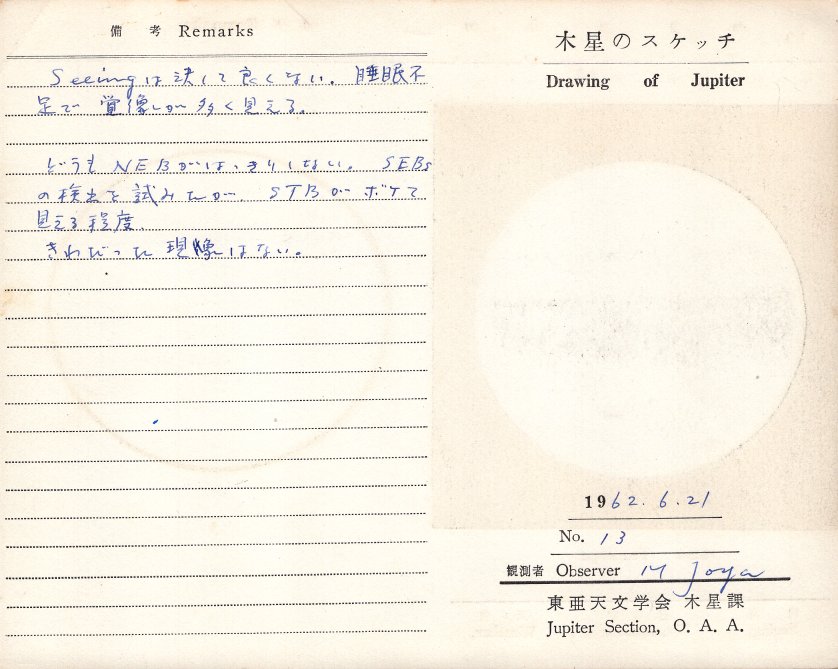 備考 Remarks
Seeingは決して良くない。睡眠不
足で覚像が多く見える。
どうもNEBがはっきりしない。SEBs
の検出を試みたが、STBがボケて
見える程度。
きわだった現像はない。
木星のスケッチ
Drawing of Jupiter
1962.6.21
No. 13
観測者 Observer M Joya
東亜天文学会 木星課
Jupiter Section, O. A. A.